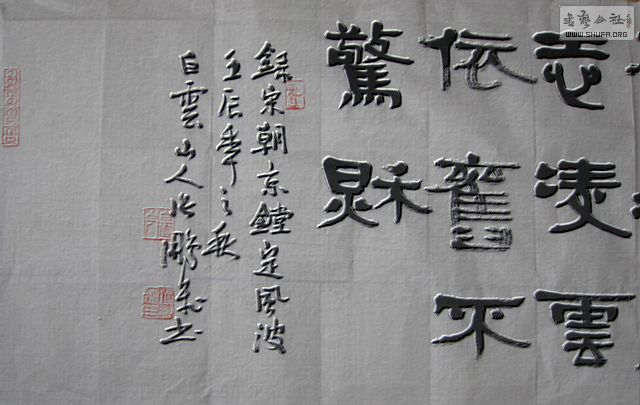 志凌雲
依舊不
驚秋
録宋朝京鏜定風波
壬辰年之秋
白雲山人張鵬書
書藝公社
WWW.SHUFA.ORG